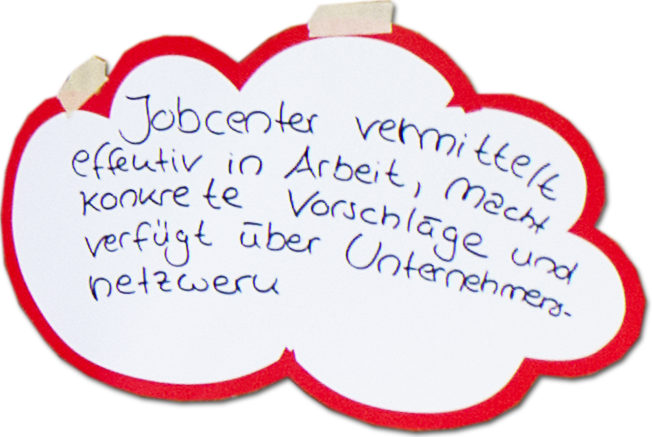 Jobcenter vermittelt
effektiv in Arbeit, macht
konkrete Vorschläge und
verfügt über Unternehmens-
netzwerk